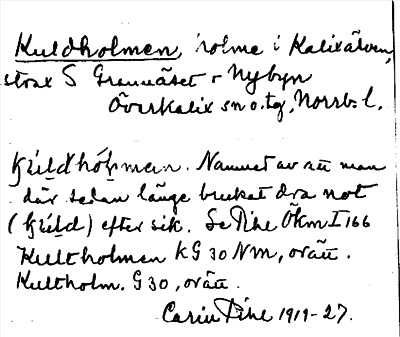 Kuldholmen, holme i Kalixälven,
strax S Grannäset o Nybyn
Överkalix sn o. tg, Norrb. l.
kúldhólmen. Namnet av att man
där sedan länge brukat dra not
(kúld) efter sik. Se Pihl Ökm I 166
Kultholmen KG 30 NM, orätt.
Kultholm. G 30, orätt.
Carin Pihl 1919-27.